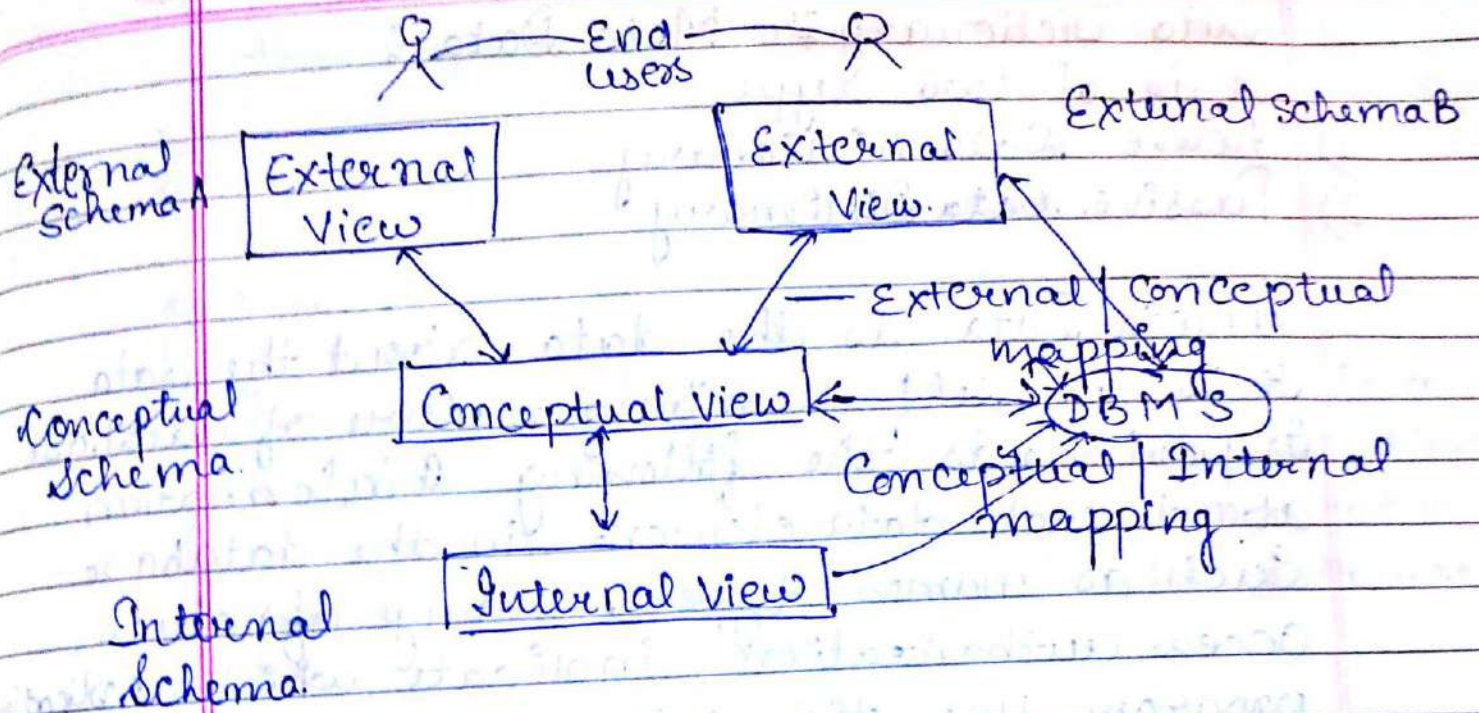 End
users
External
Schema A
External
View
External
View.
External Schema B
External | Conceptual
mapping
Conceptual
Schema.
Conceptual View
DBMS
Conceptual | Internal
mapping.
Internal
Schema.
Internal view